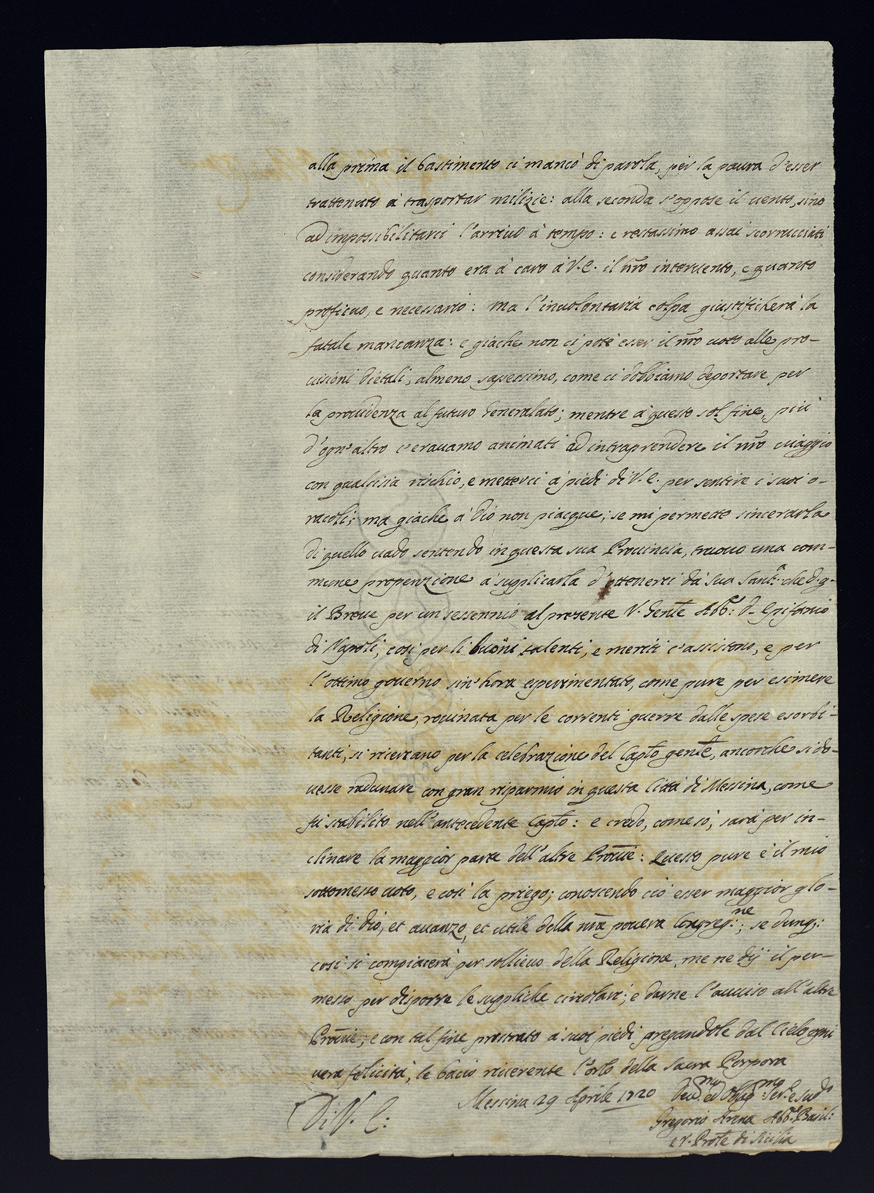 alla prima il bastimento ci mancò di parola, per la paura d'esser
trattenuto à trasportar milizie: alla seconda s'oppose il uento, sino
ad impossibilitarci l'arriuo à tempo: e restassimo assai scorrucciati
considerando quanto era à caro à V. E. il nr̃o interuento, e quanto
proficuo, e necessario: ma l'inuolontaria colpa giustificherà la
fatale mancanza: e giache non ci potè esser il nr̃o uoto alle pro-
uisioni dietali, almeno sapessimo, come ci dobbiamo deportare per
la prouidenza al futuro Generalato; mentre à questo sol fine, più
d'ogn'altro c'erauamo animati ad intraprendere il nr̃o uiaggio
con qualsisia rischio, e metterci à piedi di V. E. per sentire i suoi o-
racoli; ma giache à Dio non piacque; se mi permette sincerarla
di quello uado sentendo in questa sua Prouincia, truouo una com-
mune propenzione a supplicarla d'ottenerci da sua Sant.ª che dig.
il Breue per un sessennio al presente V. Gen̄te Abb.: D. Epifanio
di Napoli; così per li buoni talenti, e meriti c'assistono, e per
l'ottimo gouerno sin'hora esperimentato, come pure per esimere
la Religione, rouinata per le correnti guerre dalle spese esorbi-
tanti, si ricercano per la celebrazione del Capto gen̄te, ancorche si do-
uesse radunare con gran risparmio in questa Città di Messina, come
fù stabilito nell'antecedente Capto: e credo, come sò, sarà per in-
clinare la maggior parte dell'altre Prou̅e: Questo pure è il mio
sottomesso uoto, e così la priego; conoscendo ciò esser maggior glo-
ria di Dio, et auanzo, et utile della nr̃a pouera Congreg.ne; se dunq;
così si compiacerà per sollieuo della Religione, me ne dij il per-
messo per disporre le suppliche circolari; e darne l'auuiso all'altre
Prou̅e; e con tal fine prostrato à suoi piedi pregandole dal Cielo ogni
uera felicità, le bacio riuerente l'orlo della Sacra Porpora
Messina 29 Aprile 1720
Di V. E:
Deu.mo ed Obblig.mo Ser.e e Sud.o
Gregorio Arena Abb.e Basil:
e V. Prote di Sicilia